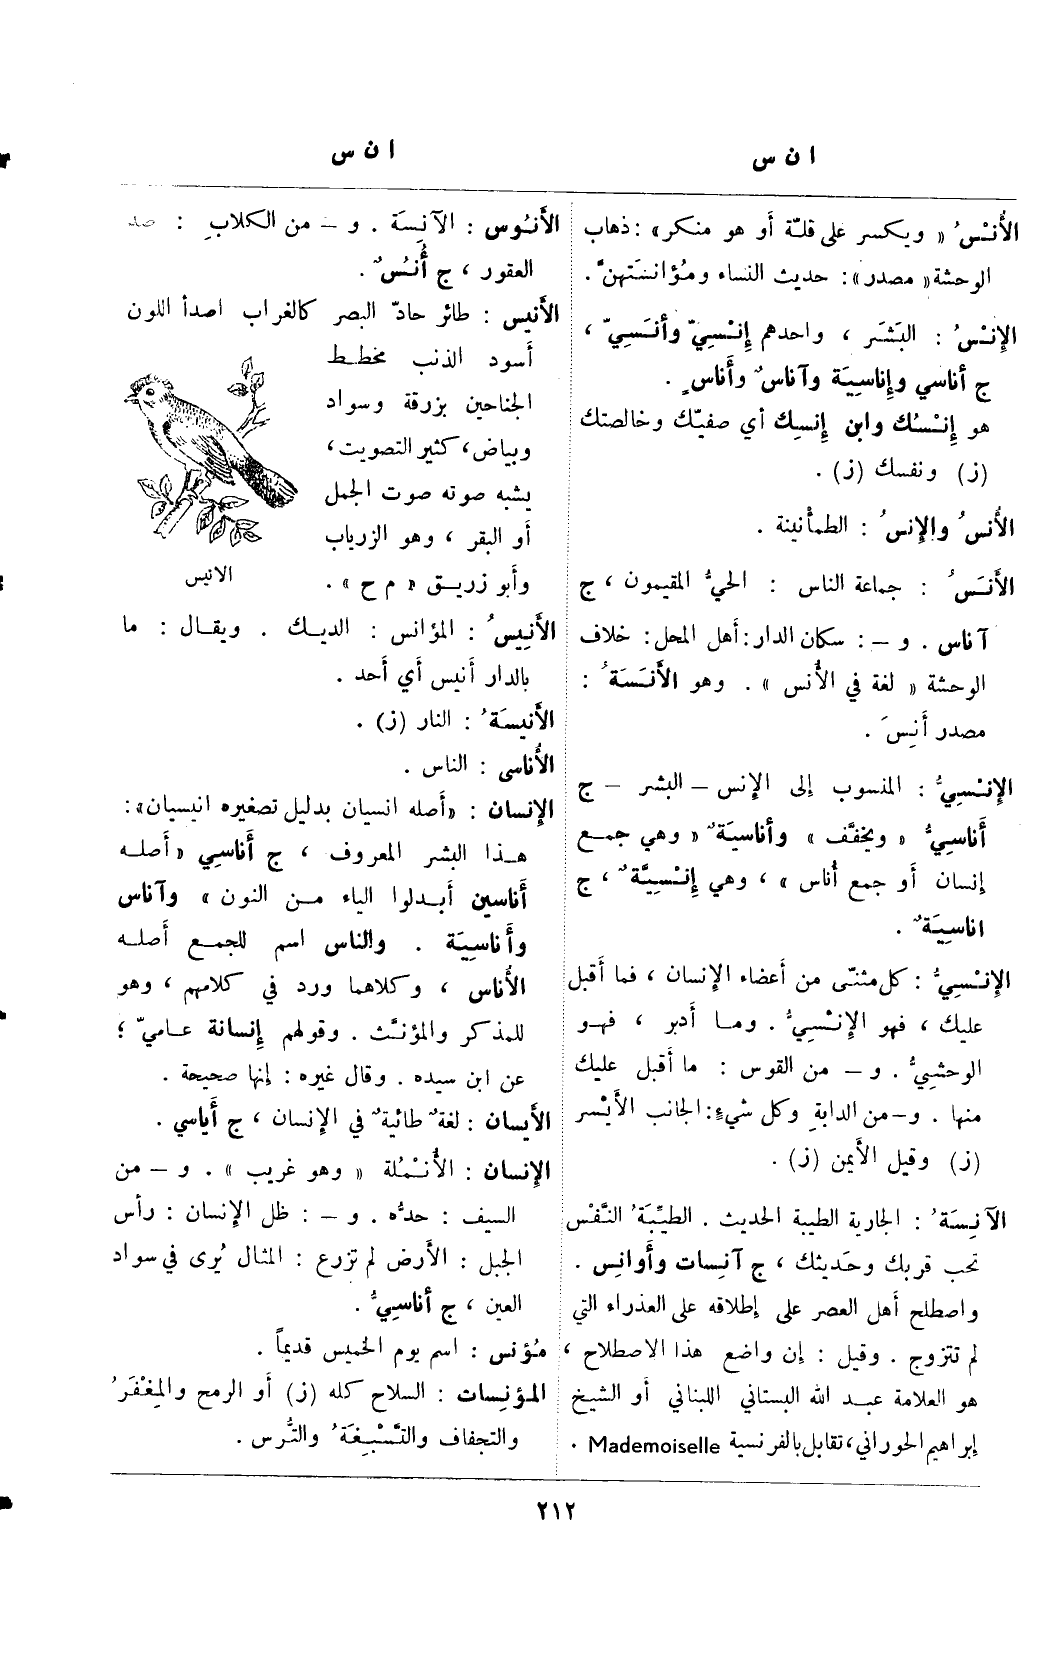 ا ن س
ا ن س
الأُنْسُ « ويكسر على قلّة أو هو منكر» : ذهاب
الوحشة« مصدر» : حديث النساء ومُؤانستهنَّ .
الإنْسُ : البَشَر ، واحدهم إنْسِيّ وأنَسِيّ ،
ج أناسي وإناسِيَة وآناسٌ وأُناسٍ .
هو إنْسُك وابن إنسِك أي صفيّك وخالصتك
(ز) ونفسك (ز) .
الأُنسُ والإنسُ : الطمأنينة .
الأَنَسُ : جماعة الناس : الحيُّ المقيمون ، ج
آناس . و – : سكان الدار : أهل المحل : خلاف
الوحشة « لغة في الأُنس » . وهو الأَنَسَةُ :
مصدر أَنِسَ .
الإنْسِيُّ : المنسوب إلى الإنس – البشر – ج
أَناسيُّ « ويخفَّف » وأناسيَةٌ « وهي جمع
إنسان أو جمع أُناس » ، وهي إنْسِيَّةٌ ، ج
اناسِيَةٌ .
الإنْسِيُّ : كل مثنّى من أعضاء الإنسان ، فما أقبل
عليك ، فهو الإنْسِيُّ . وما أدبر ، فهو
الوحشيُّ . و – من القوس : ما أقبل عليك
منها . و–من الدابةِ وكل شيءٍ : الجانب الأيْسر
(ز) وقيل الأيمن (ز) .
الآنِسَةُ : الجارية الطيبة الحديث . الطيِّبَةُ النَّفْس
تحب قربك وحَديثك ، ج آنِسات وأَوانِس .
واصطلح أهل العصر على إطلاقه على العذراء التي
لم تتزوج . وقيل : إن واضع هذا الاصطلاح ،
هو العلامة عبد الله البستاني اللبناني أو الشيخ
إبراهيم الحوراني ، تقابل بالفرنسية Mademoiselle .
الأَنُوس : الآنِسَة . و – من الكلابِ : ضد
العقور ، ج أُنُسٌ .
الأنيس : طائر حادّ البصر كالغراب اصدأ اللون
أسود الذنب مخطط
الجناحين بزرقة وسواد
وبياض ، كثير التصويت ،
يشبه صوته صوت الجمل
أو البقر ، وهو الزرياب
وأبو زريق « م ح » .
الانيس
الأَنِيسُ : المؤانس : الديك . ويقال : ما
بالدار أنيس أي أحد .
الأَنيسَةُ : النار (ز) .
الأُناسى : الناس .
الإنسان : «أصله انسيان بدليل تصغيره انيسيان» :
هذا البشر المعروف ، ج أَناسي «أصله
أَناسين أبدلوا الياء من النون » وآناس
وأناسِيَة . والناس اسم للجمع أصله
الأُناس ، وكلاهما ورد في كلامهم ، وهو
للمذكر والمؤنَّث . وقولهم إنسانة عاميّ ؛
عن ابن سيده . وقال غيره : إنها صحيحة .
الأَيسان : لغةٌ طائيةٌ في الإنسان ، ج أَياسي .
الإنسان : الأُنْمُلة « وهو غريب » . و – من
السيف : حدُّه . و – : ظل الإنسان : رأس
الجبل : الأرض لم تزرع : المثال يُرى في سواد
العين ، ج أَناسِيُّ .
مُؤنس : اسم يوم الخميس قديماً .
المؤنِسات : السلاح كله (ز) أو الرمح والمِغْفَرُ
والتجفاف والتَّسْبِغَةُ والتُّرس .
٢١٢